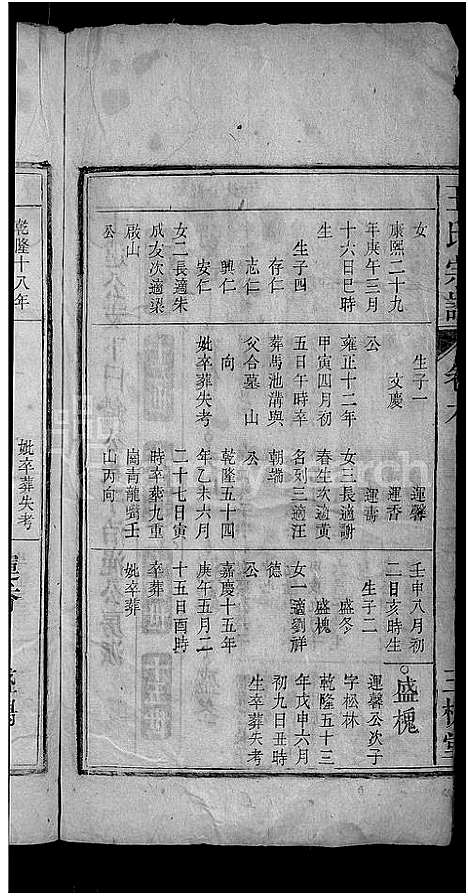 王氏宗譜
卷九
三槐堂
女
康熙二十九
年庚午三月
十六日巳時
生
生子四
存仁
志仁
興仁
安仁
女二長適朱
成友次適梁
啟山
公
生子一
文慶
公
雍正十二年
甲寅四月初
五日午時卒
葬馬池溝與
父合墓 山
向
妣卒葬失考
運馨
運香
運壽
女三長適謝
春生次適黃
名列三適汪
朝端
公
乾隆五十四
年乙未六月
二十七日寅
時卒葬九重
崗青龍嘴壬
山丙向
壬申八月初
二日亥時生
生子二
盛冬
盛槐
女一適劉祥
德
公
嘉慶十五年
庚午五月二
十五日酉時
卒葬
妣卒葬
盛槐
運馨公次子
字松林
乾隆五十三
年戊申六月
初九日丑時
生卒葬失考
乾隆十八年
妣卒葬失考